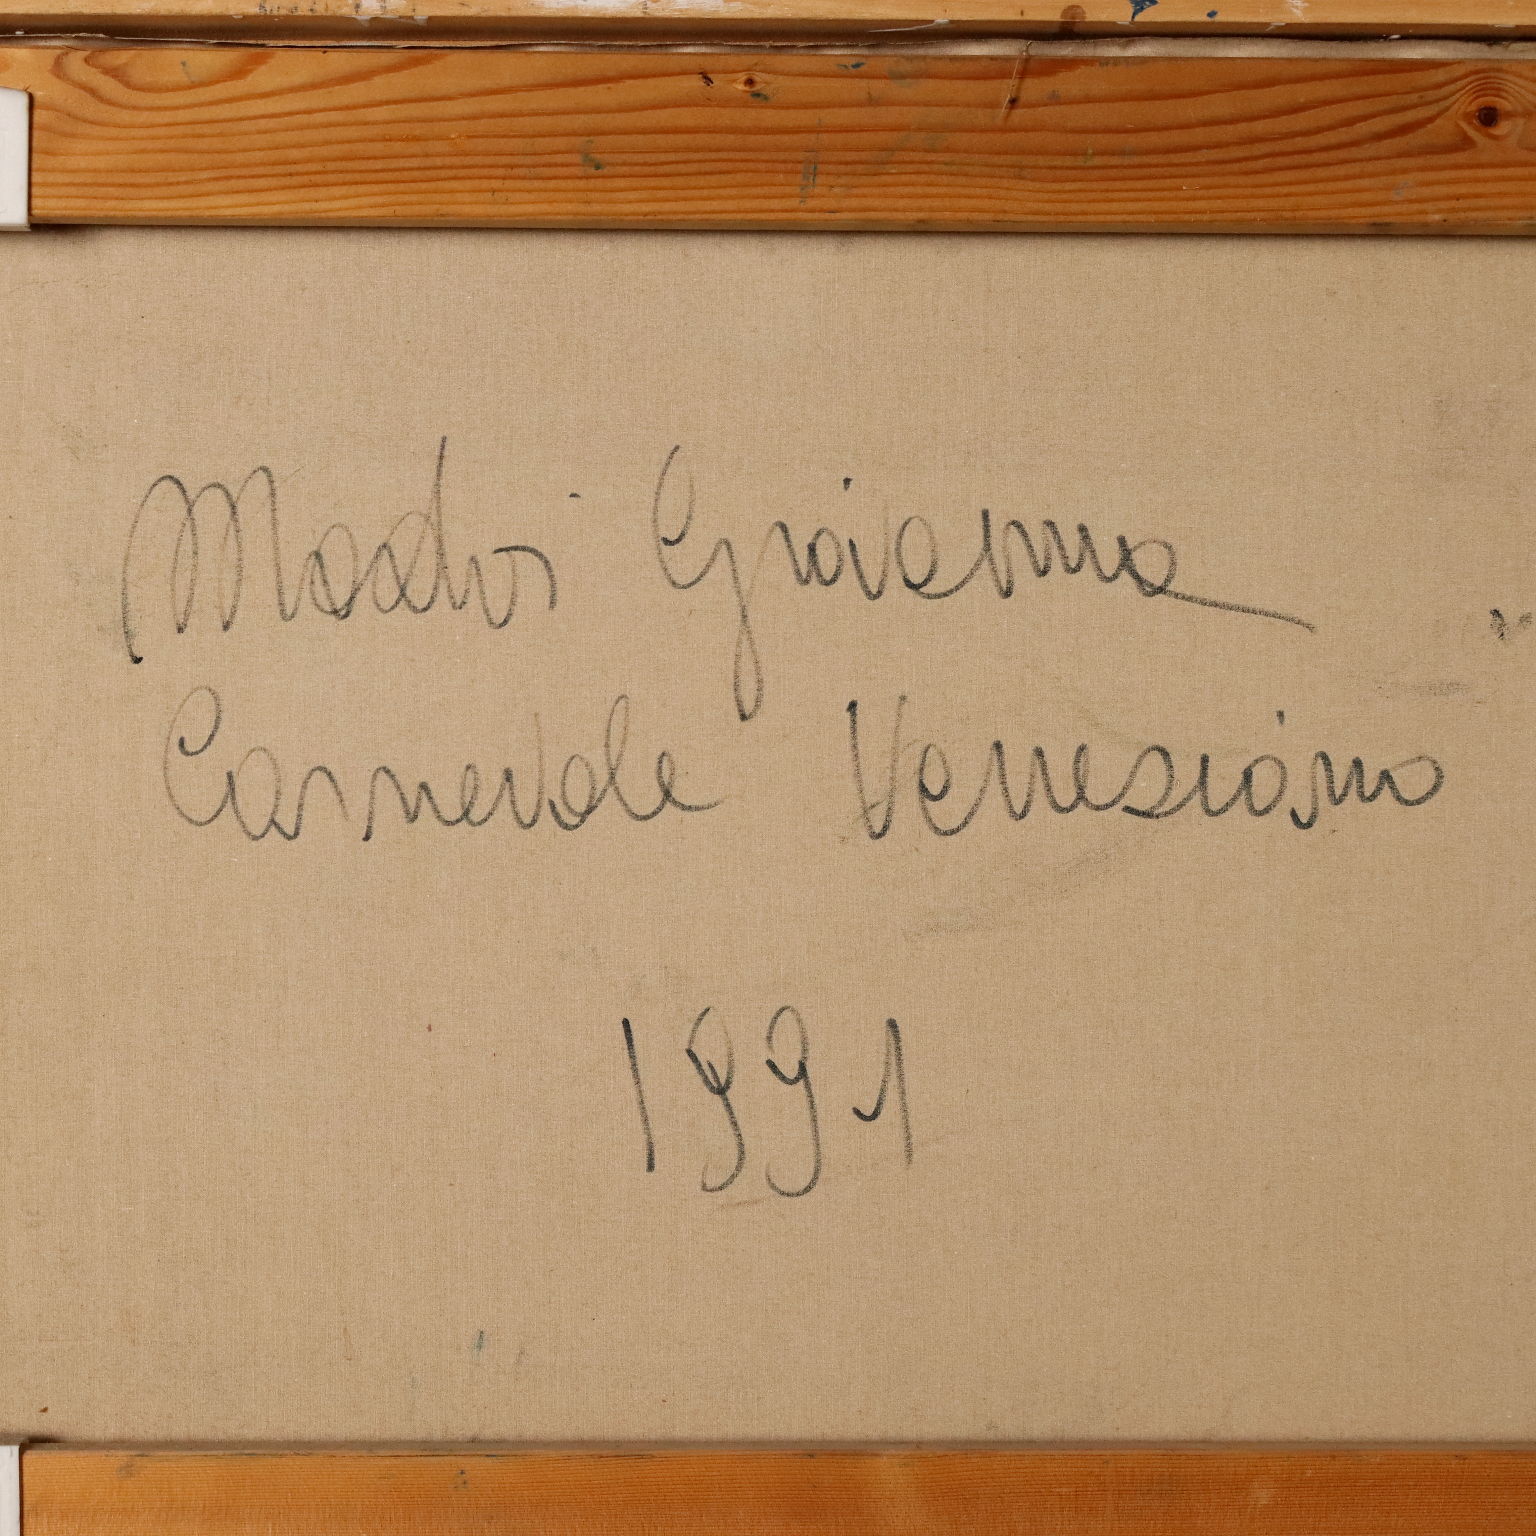 Madvi Giovanna
Carnevale Veneziano
1991